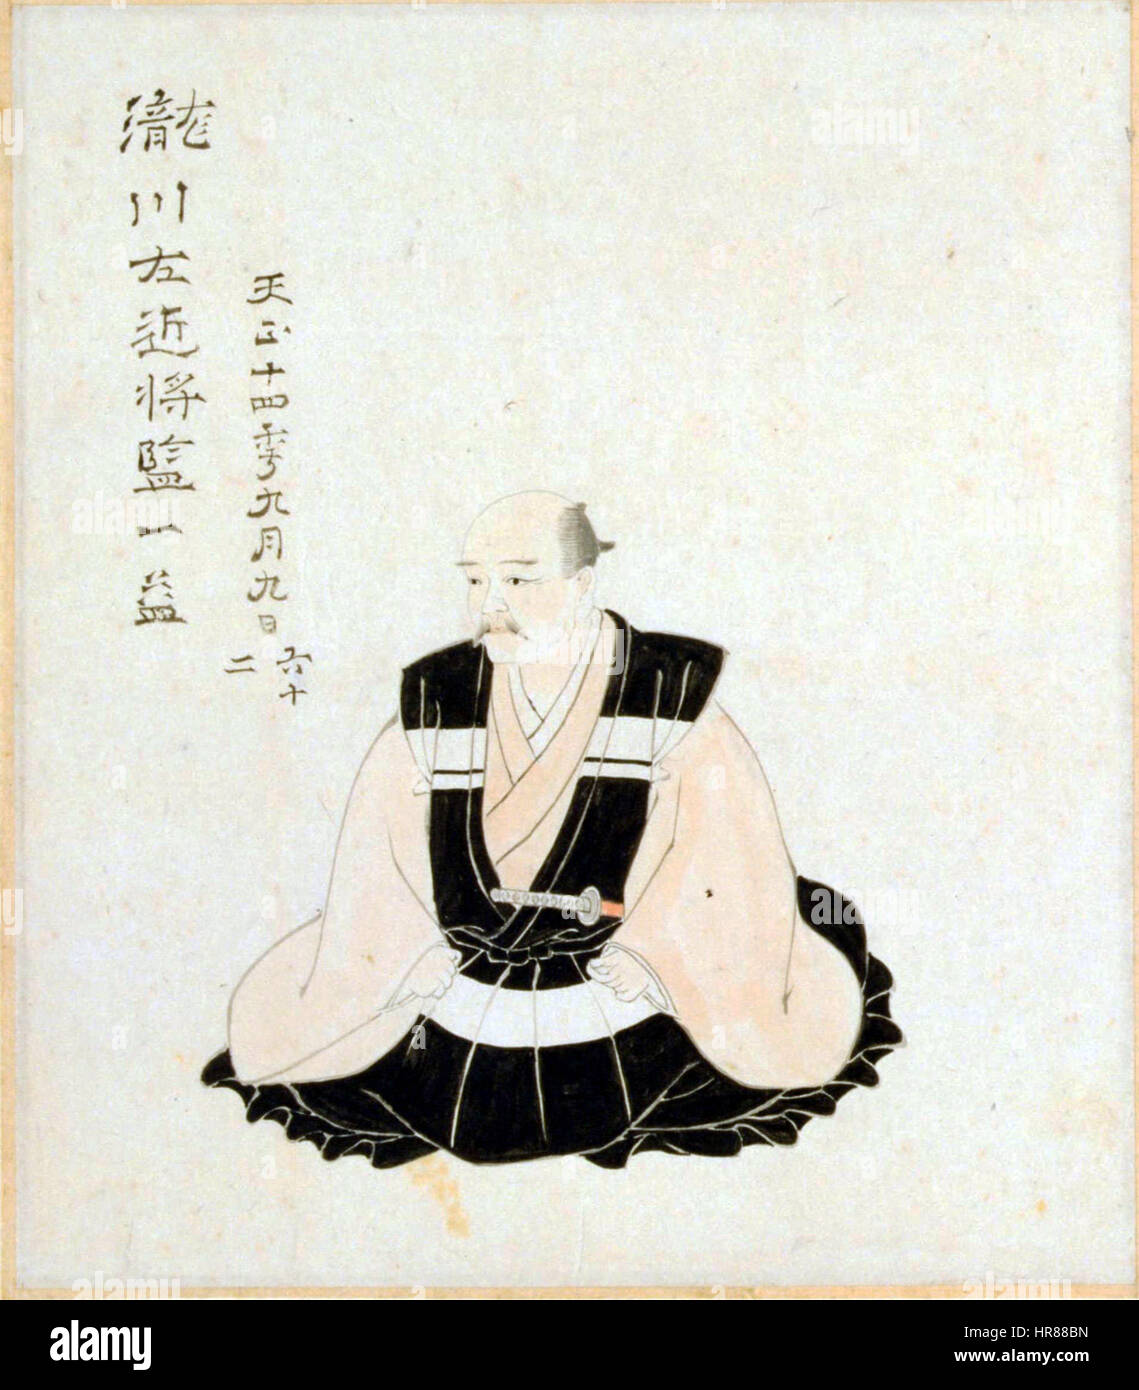 瀧川左近将監一益
天正十四季九月九日
六十二
alamy
alamy
Image ID: HR88BN
www.alamy.com